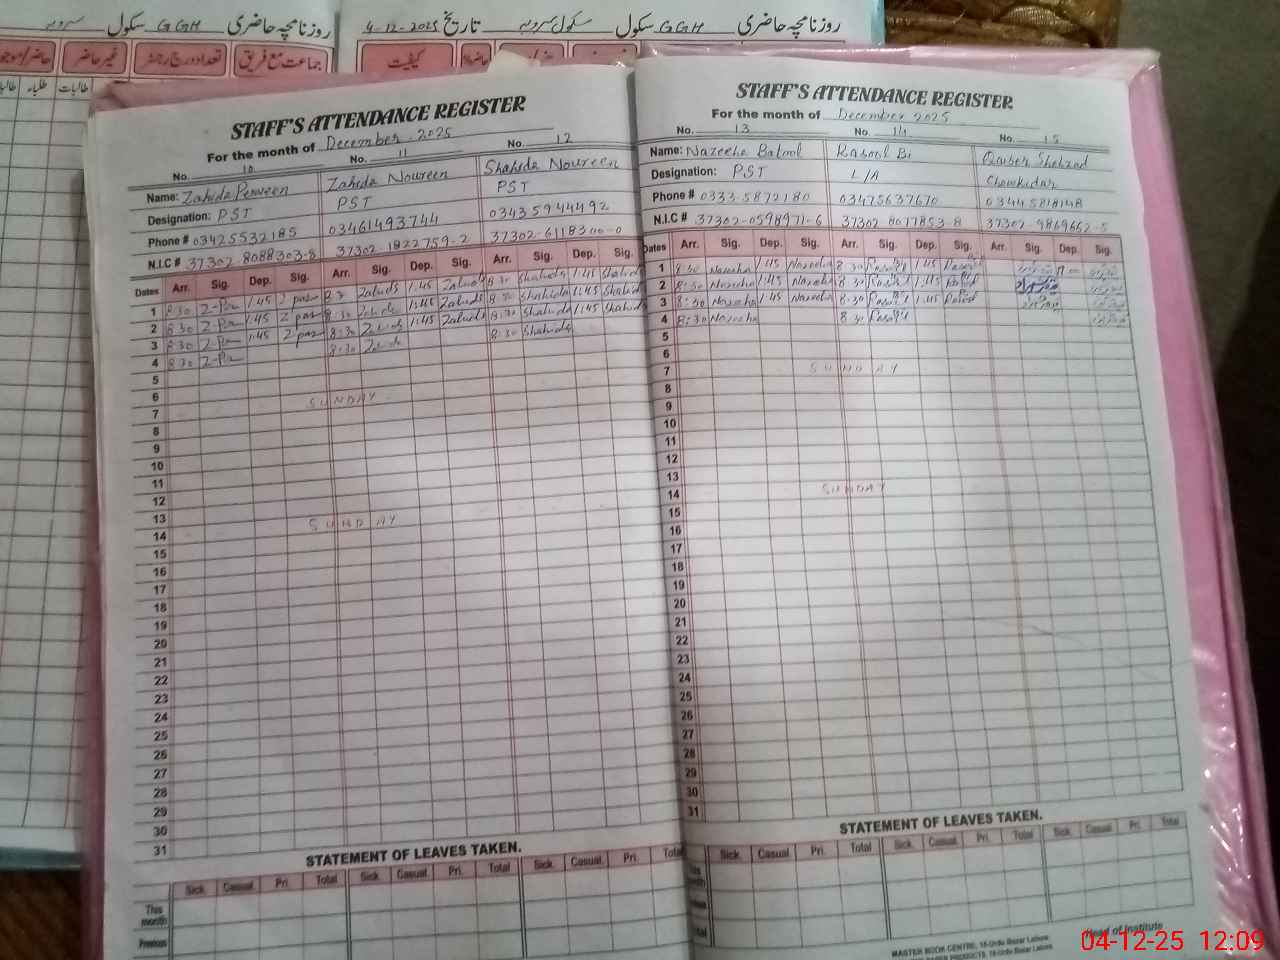 روزنامچہ حاضری GGH سکول
روزنامچہ حاضری GGH سکول تاریخ 4-12-2025
جماعت مع فریق تعداد درج رجسٹر غیر حاضر
کیفیت
طالبات طلباء
STAFF'S ATTENDANCE REGISTER
For the month of December 2025
No. 10 No. 11 No. 12
Name: Zahida Perveen Zahida Noureen Shahida Noureen
Designation: PST PST PST
Phone # 03425532185 03461493744 03435944492
N.I.C # 37302 8088303-8 37302-1822759-2 37302-6118300-0
Dates Arr. Sig. Dep. Sig. Arr. Sig. Dep. Sig. Arr. Sig. Dep. Sig.
1 8:30 1:45 8:30 Zahida 1:45 Zahida 8:30 Shahida 1:45 Shahida
2 8:30 1:45 8:30 Zahida 1:45 Zahida 8:30 Shahida 1:45 Shahida
3 8:30 1:45 8:30 Zahida 1:45 Zahida 8:30 Shahida 1:45 Shahida
4 8:30 8:30 Zahida 8:30 Shahida
5
6
7 SUNDAY
8
9
10
11
12
13
14 SUNDAY
15
16
17
18
19
20
21
22
23
24
25
26
27
28
29
30
31
STATEMENT OF LEAVES TAKEN.
Sick. Casual. Pri. Total Sick. Casual. Pri. Total Sick. Casual. Pri. Total
This month
Previous
STAFF'S ATTENDANCE REGISTER
For the month of December 2025
No. 13 No. 14 No. 15
Name: Nazeeha Batool Rasool Bi Qaiser Shahzad
Designation: PST L/A Chowkidar
Phone # 0333.5872180 03475637670 03445818148
N.I.C # 37302-0598971-6 37302 8077853-8 37302-9869662-5
Dates Arr. Sig. Dep. Sig. Arr. Sig. Dep. Sig. Arr. Sig. Dep. Sig.
1 8:30 Nazeeha 1:45 Nazeeha 8:30 1:45
2 8:30 Nazeeha 1:45 Nazeeha 8:30 1:45
3 8:30 Nazeeha 1:45 Nazeeha 8:30 1:45
4 8:30 Nazeeha 8:30
5
6
7 SUNDAY
8
9
10
11
12
13
14 SUNDAY
15
16
17
18
19
20
21
22
23
24
25
26
27
28
29
30
31
STATEMENT OF LEAVES TAKEN.
Sick. Casual. Pri. Total Sick. Casual. Pri. Total Sick. Casual. Pri. Total
Head of Institute
MASTER BOOK CENTRE, 18-Urdu Bazar Lahore.
04-12-25 12:09